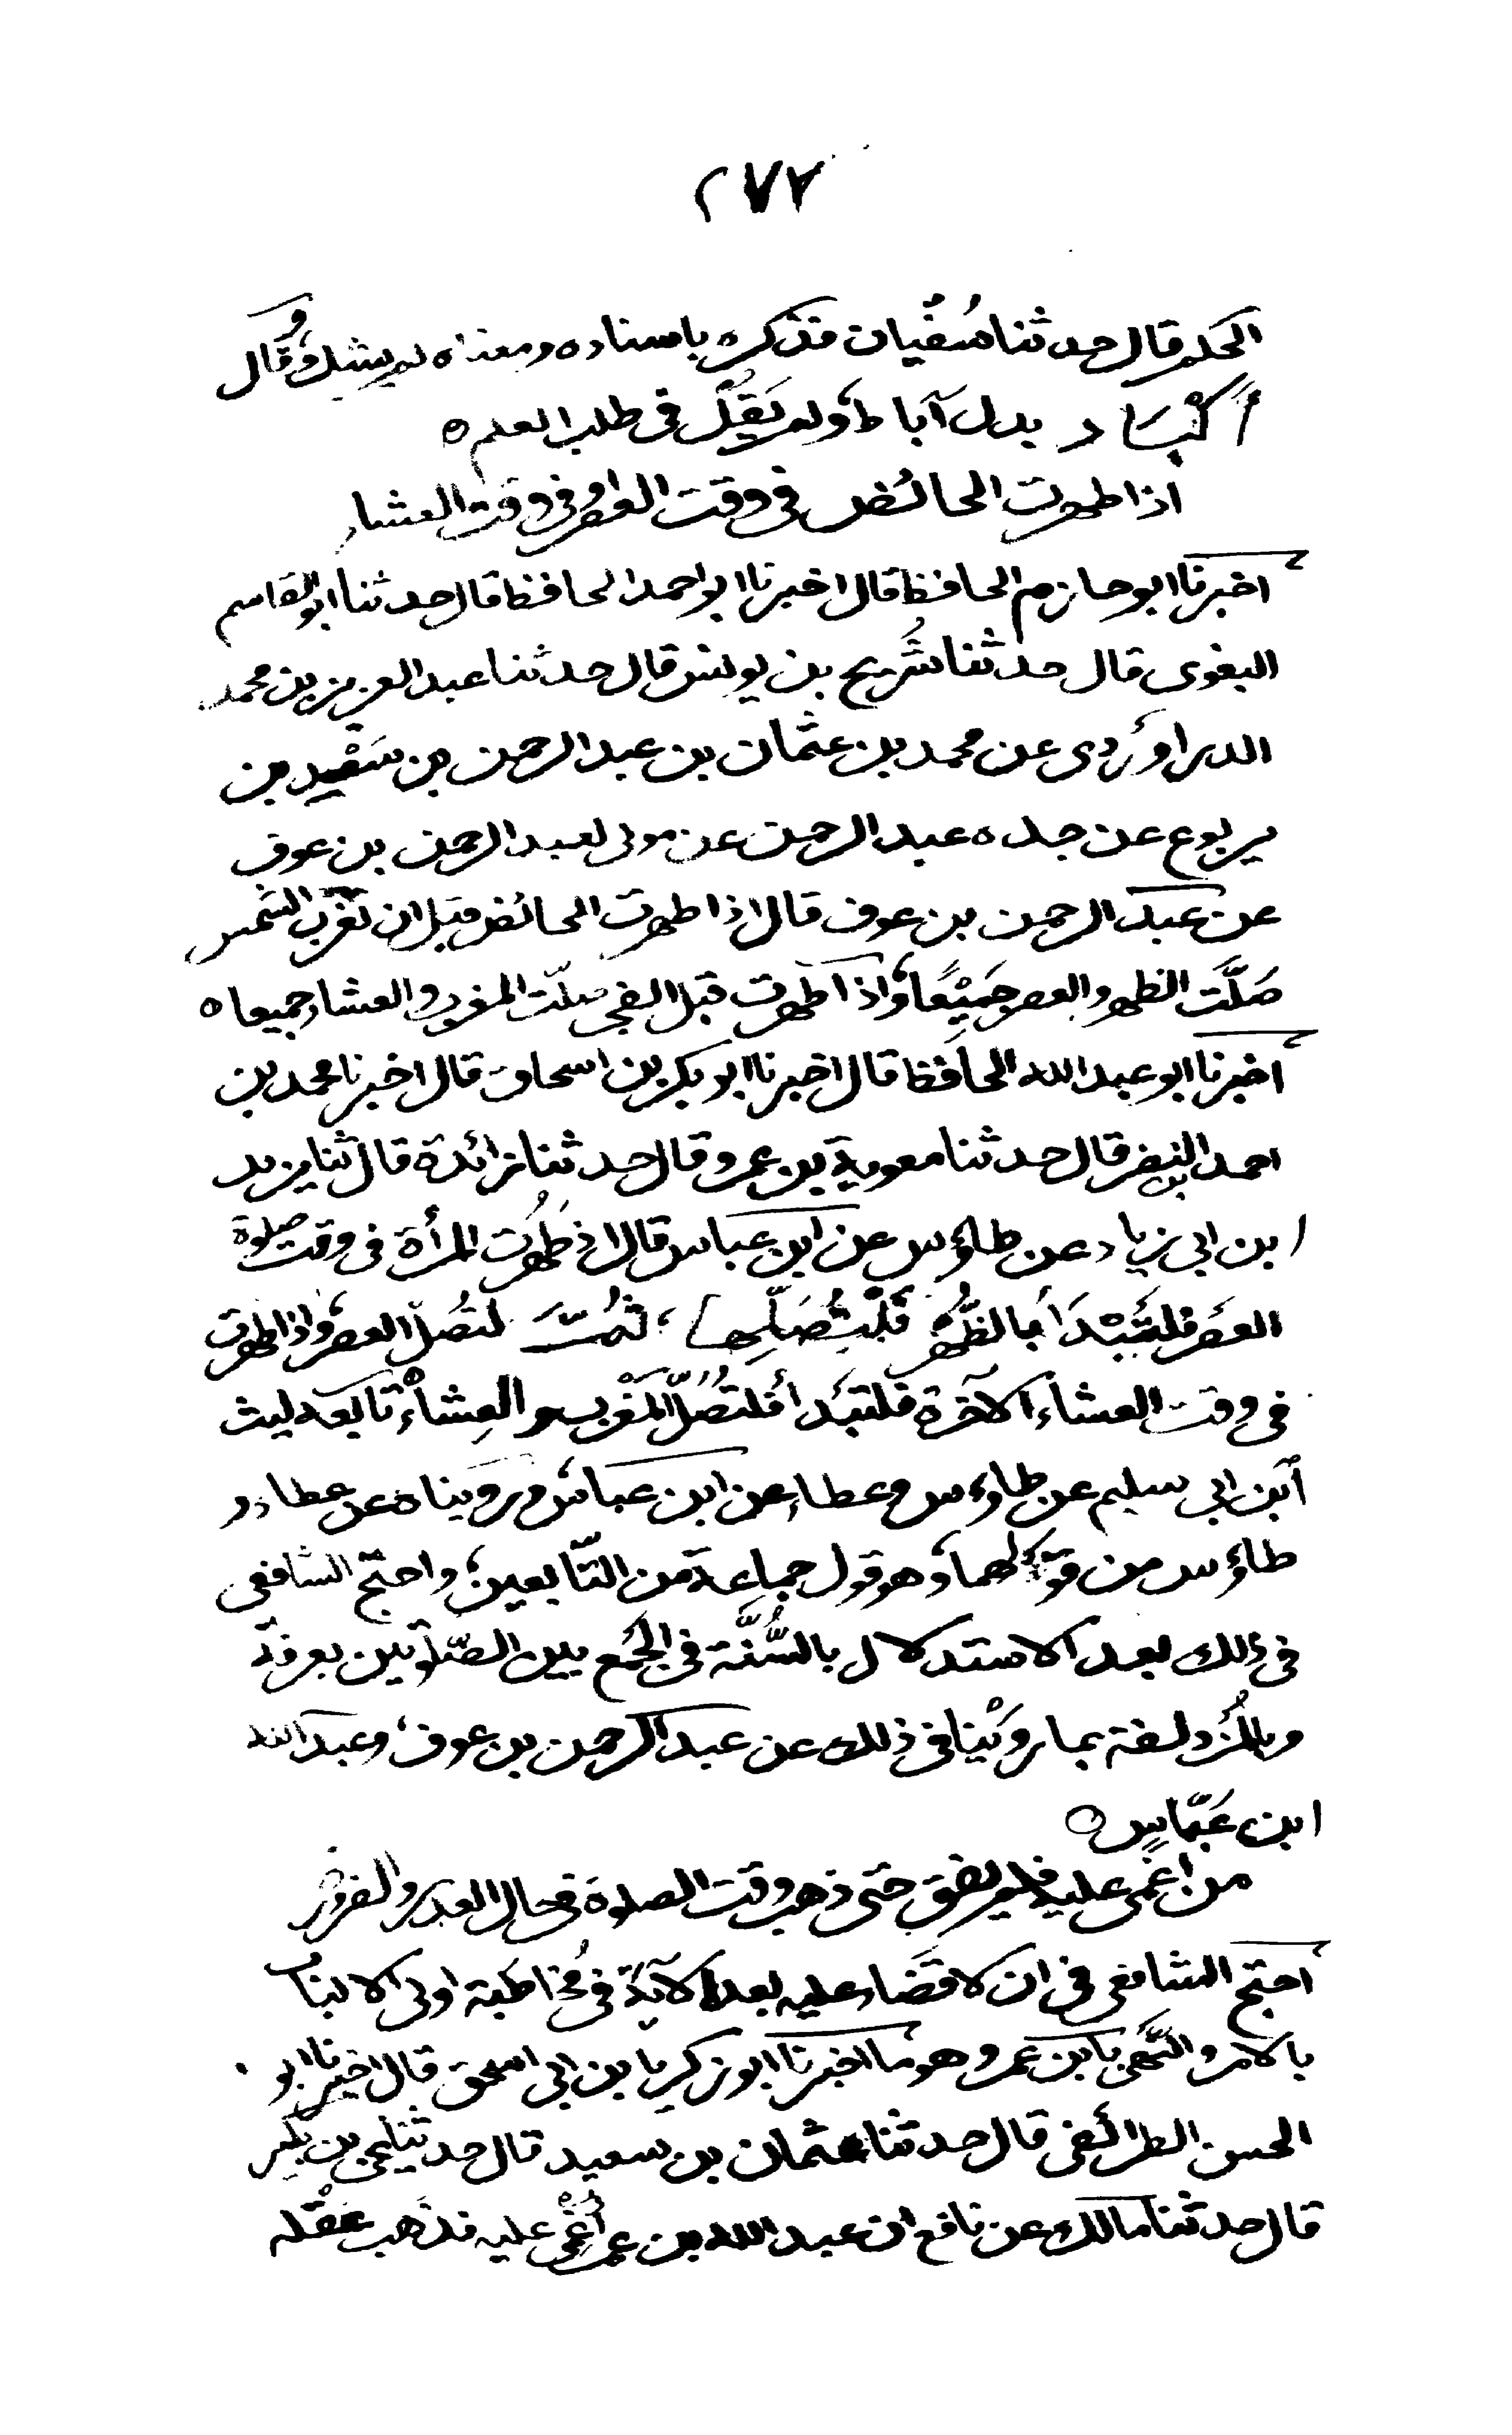 ٢٧٧
الحكم قال حدثنا سُفْيان فذكره باسناده ومعناه لم يشك وقال
أكْبَاد بدل آباط، ولم يَقُلْ في طلب العلم ه
اذا طهرت الحائض في وقت العصر او في وقت العشاء
اخبرنا ابو حازم الحافظ قال اخبرنا ابو احمد الحافظ قال حدثنا ابو القاسم
البغوى قال حدثنا سُريج بن يونس قال حدثنا عبد العزيز بن محمد
الدراوَرْدى عن محمد بن عثمان بن عبد الرحمن بن سَعْيد بن
يربوع عن جده عبد الرحمن عن مولى لعبد الرحمن بن عوف
عن عبد الرحمن بن عوف قال اذا طهرت الحائض قبل ان تغرب الشمس
صَلَّت الظهر والعصر جَمِيْعًا، واذا طهرت قبل الفجر صلّت المغرب والعشاء جميعا ه
اخبرنا ابو عبد الله الحافظ قال اخبرنا ابو بكر بن اسحاق قال اخبرنا محمد بن
احمد بن النضر قال حدثنا معوية بن عمرو قال حدثنا زائدة قال ثنا يزيد
ابن ابى زياد عن طاؤس عن ابن عباس قال اذ طَهُرت المرأة فى وقت صلوة
العصر فلتَبْدَأ بالظُّهْر فَلْتُصَلِّها، ثمت لتصلّ العصر، واذا طهرت
فى وقت العشاء الآخرة فلتبدَأ فلتصُلّ المَغْرب والعِشاءْ تابعه ليث
ابن ابى سليم عن طاوءس وعطاء عن ابن عباس، ورويناه عن عطاء و
طاؤس من قولهما، وهو قول جماعة من التّابعين، واحتج الشافعى
فى ذلك بعد الاستدلال بالسُّنَّة فى الجمع بين الصّلوتين بعرفة
وبالمُزدلفة بما رويْنا فى ذلك عن عبد الرحمن بن عوف، وعبد الله
ابن عَبّاسٍ ه
من اغمى عليه فلم يفق حتى ذهب وقت الصلوة فى حال العذر والضرورة
احتج الشافعى فى ان لا قضَاء عليه بعد الآية فى مُخاطبة اولى الالباب
بالامر والنّهى بابن عمر وهو ما اخبرنا ابو زكريا بن ابى اسحق قال اخبرنا ابو
الحسن الطرائفى قال حدثنا عثمان بن سعيد قال حدثنا يحيى بن بكير
قال حدثنا مالك عن نافع ان عبد الله بن عمر أُغْمى عليه فذَهب عَقْله